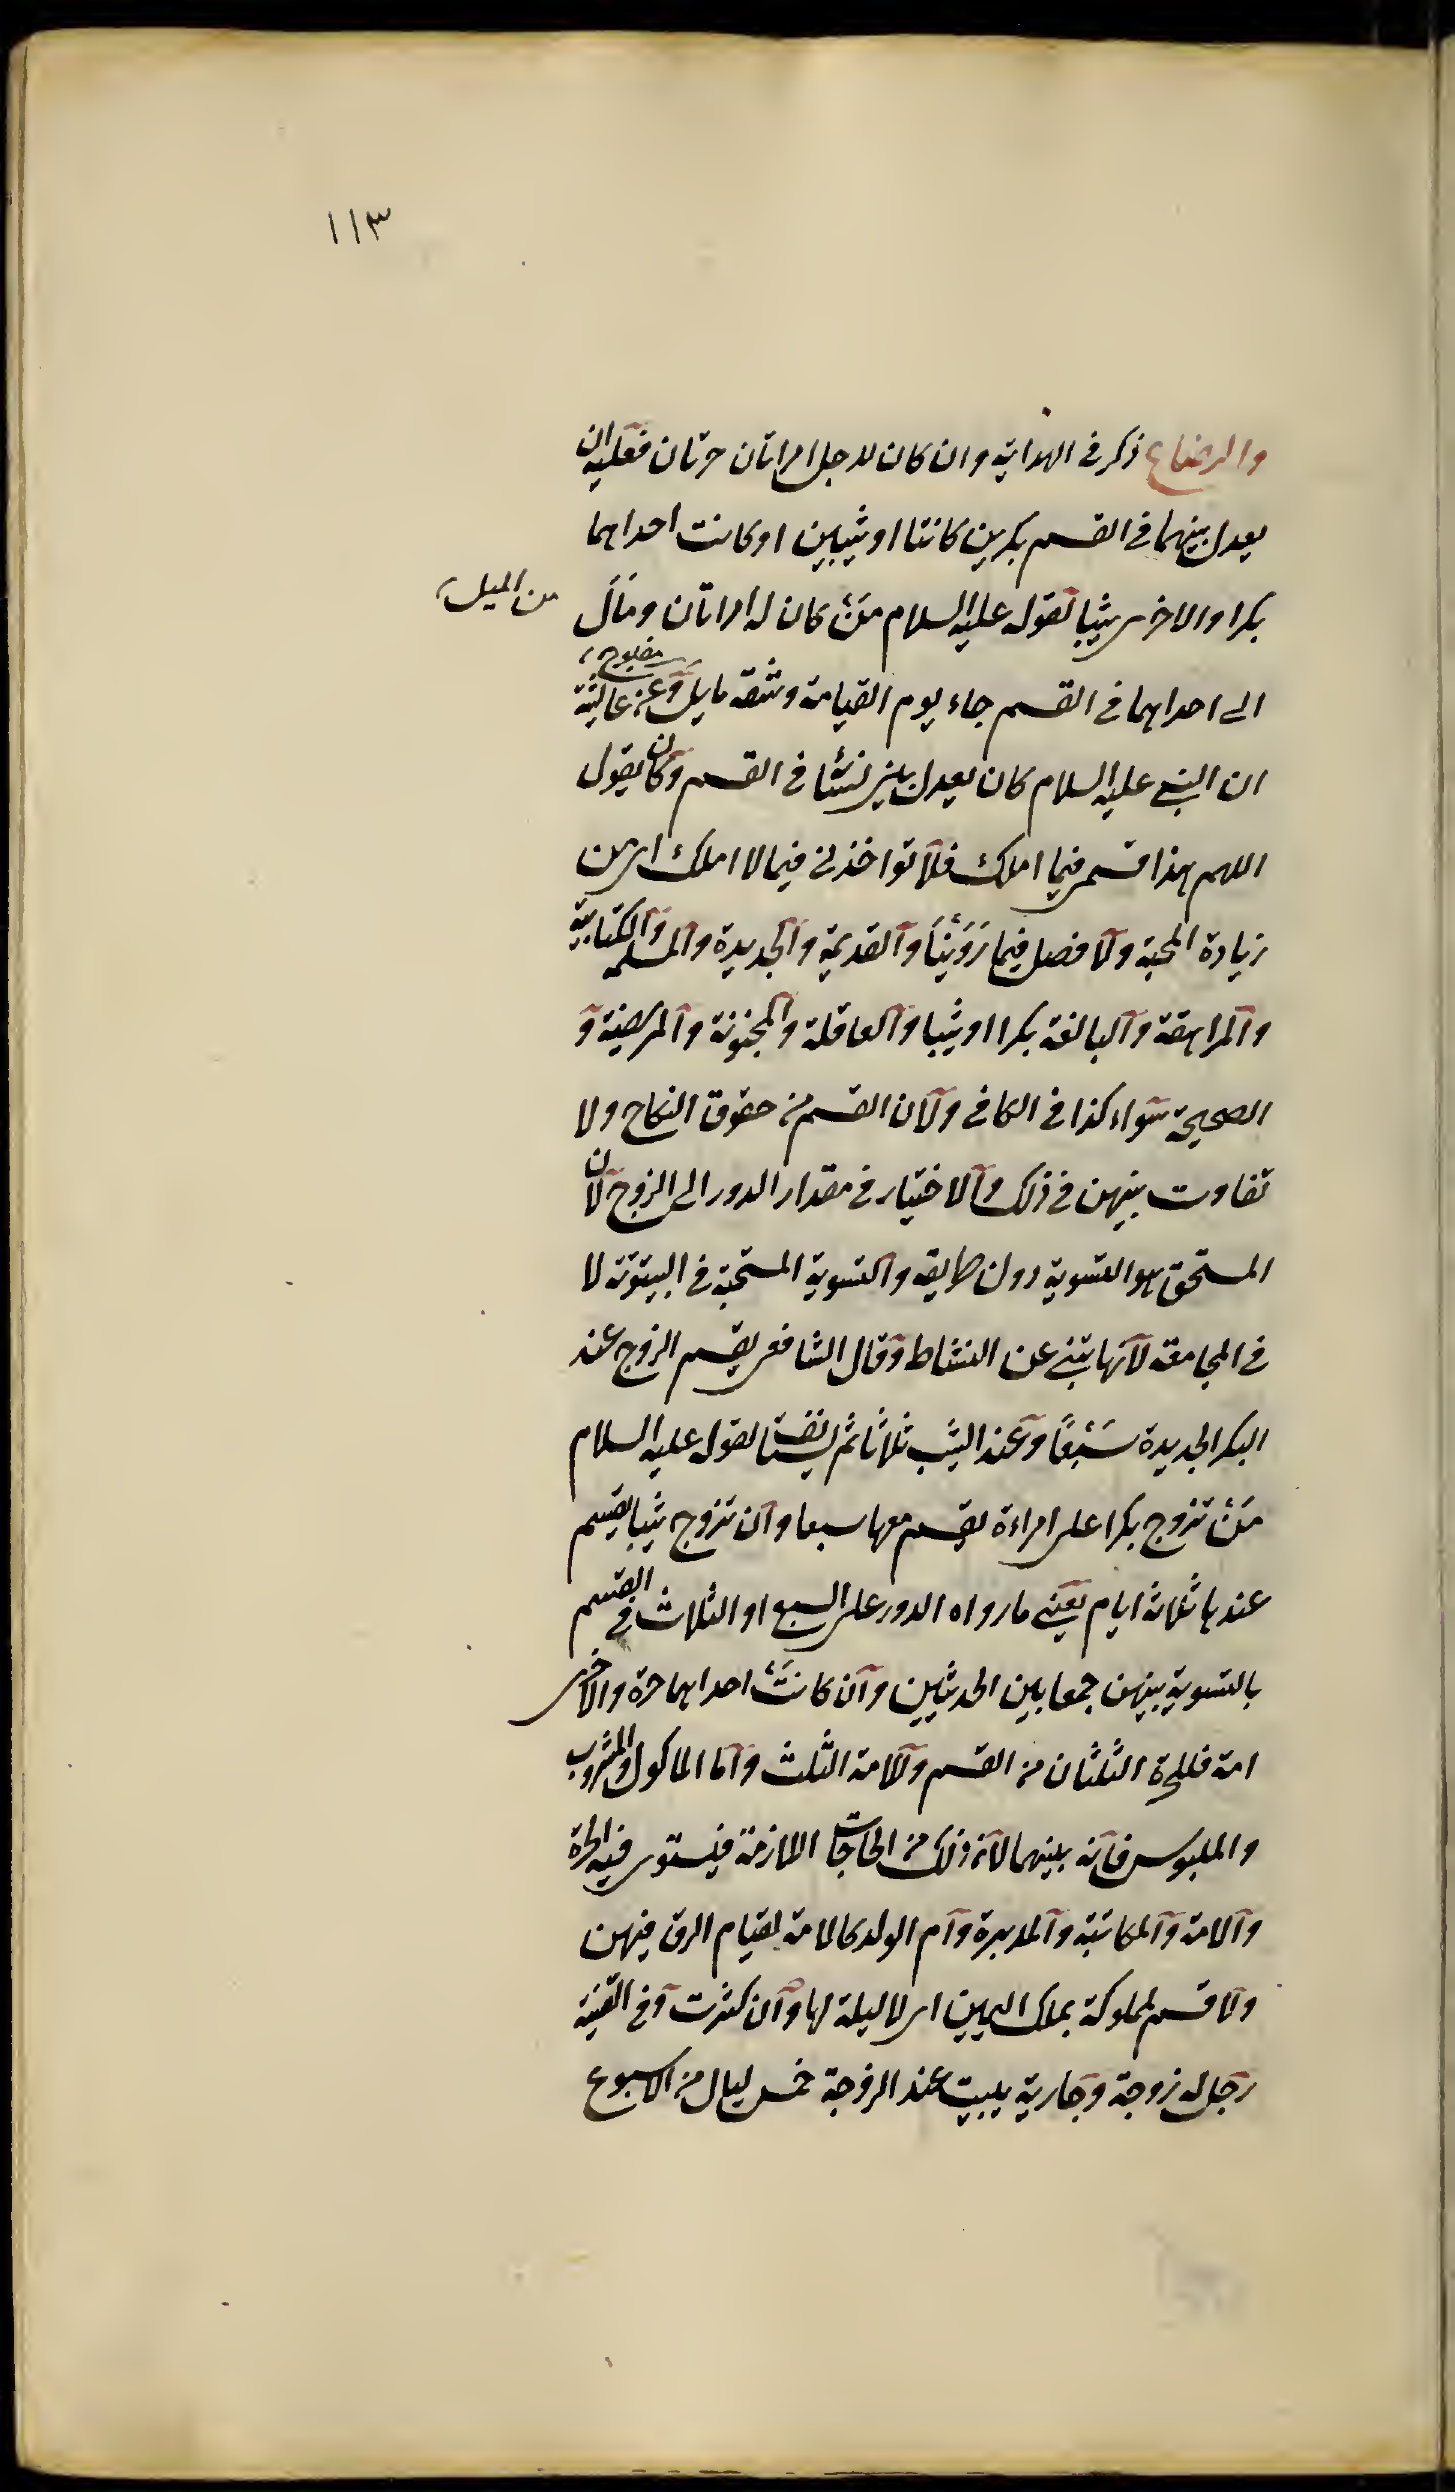 ١١٣
والرضاع ذكر في الهداية وان كان لرجل امراتان حرتان فعليه ان
يعدل بينهما في القسم بكرين كانتا او ثيبين او كانت احداهما
بكرا والاخرى ثيبا لقوله عليه السلام مَنْ كان له امراتان ومَالَ
من الميل
الى احداهما في القسم جاء يوم القيامة وشقه مايل وعن عايشة
مفلوج
ان النبي عليه السلام كان يعدل بين نسائه في القسم وكان يقول
اللهم هذا قسمي فيما املك فلا تواخذني فيما لا املك اى من
زيادة المحبة ولا فصل فيما رَوَيْنَا والقديمة والجديدة والمسلمة والكتابية
والمراهقة والبالغة بكرا او ثيبا والعاقلة والمجنونة والمريضة و
الصحيحة سواء كذا في الكافي ولان القسم من حقوق النكاح ولا
تفاوت بينهن في ذلك والاختيار في مقدار الدور الى الزوج لان
المستحق هو التسوية دون طريقه والتسوية المستحقة في البيتوتة لا
في المجامعة لانها تبنى عن النشاط وقال الشافعي يقسم الزوج عند
البكر الجديدة سَبْعًا وعند الثيب ثلاثا ثم لقوله عليه السلام
مَنْ تزوج بكرا على امراءة يقسم معها سبعا وان تزوج ثيبا يقسم
عندها ثلاثة ايام يعني ما رواه الدور على السبع او الثلاث في القسم
بالتسوية بينهن جمعا بين الحديثين وان كانَتْ احداهما حرة والاخرى
امة فللحرة الثلثان من القسم وللامة الثلث واما الماكول والمشروب
والملبوس فانه بينهما لان ذلك من الحاجات اللازمة فيستوى فيه الحرة
والامة والمكاتبة والمدبرة وام الولد كالامة لقيام الرق فيهن
ولا قسم لمملوكة بملك اليمين اى لا ليلة لها وان كثرت وفي القنية
رجل له زوجة وجارية يبيت عند الزوجة خمس ليال من الاسبوع